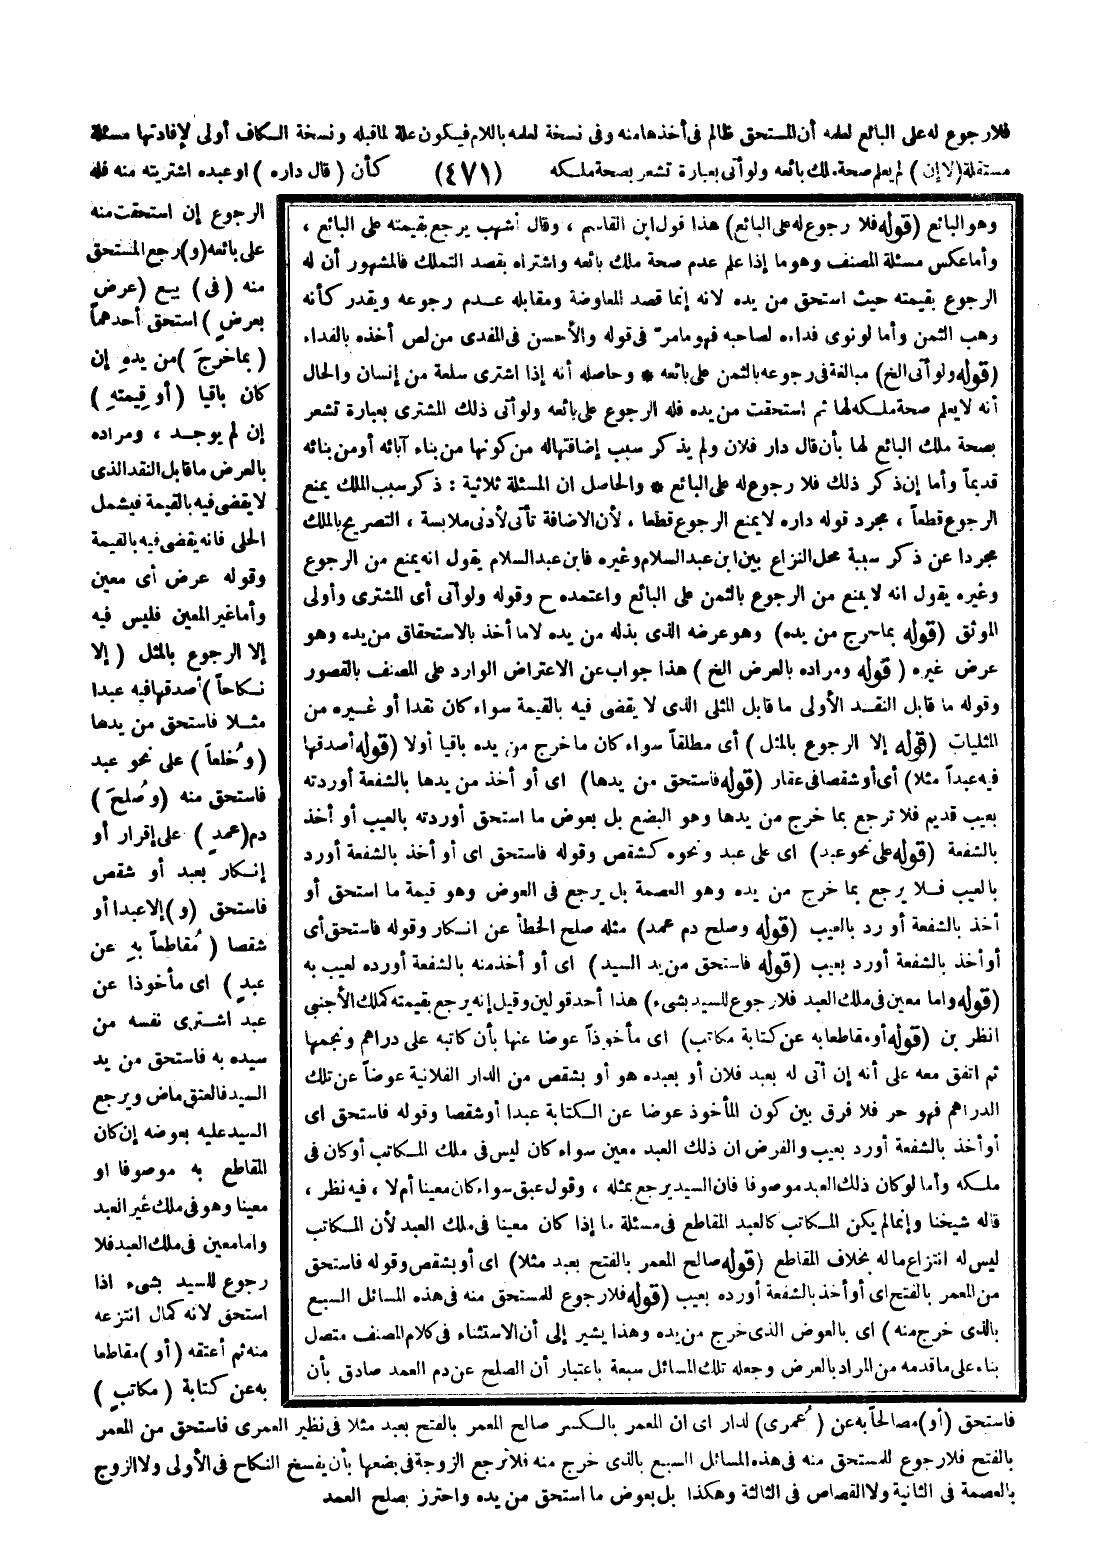 فلا رجوع له على البائع لعلمه أن المستحق ظالم فى أخذها منه وفى نسخة لعلمه باللام فيكون علة لما قبله ونسخة الكاف أولى لإفادتها مسئلة
مستقلة (لا إن) لم يعلم صحة ملك بائعه ولو أتى بعبارة تشعر بصحة ملكه (٤٧١) كأن (قال داره) او عبده اشتريته منه فله
الرجوع إن استحقت منه
على بائعه (و) رجع المستحق
منه (فى) بيع (عرض
بعرض) استحق أحدهما
(بما خرجَ) من يدهِ إن
كان باقيا (أو قِيمتهِ)
إن لم يوجد ، ومراده
بالعرض ما قابل النقد الذى
لا يقضى فيه بالقيمة فيشمل
الحلى فانه يقضى فيه بالقيمة
وقوله عرض أى معين
وأما غير المعين فليس فيه
إلا الرجوع بالمثل (إلا
نكاحاً) أصدقها فيه عبدا
مثلا فاستحق من يدها
(وخُلعاً) على نحو عبد
فاستحق منه (وصُلحَ)
دم (عمدٍ) على إقرار أو
إنكار بعبد أو شقص
فاستحق (و) إلا عبدا أو
شقصا (مُقاطعاً بهِ عن
عبدٍ) اى مأخوذا عن
عبد اشترى نفسه من
سيده به فاستحق من يد
السيد فالعتق ماض ويرجع
السيد عليه بعوضه إن كان
المقاطع به موصوفا او
معينا وهو فى ملك غير العبد
واما معين فى ملك العبد فلا
رجوع للسيد بشىء اذا
استحق لانه كمال انتزعه
منه ثم أعتقه (أو) مقاطعا
به عن كتابة (مكاتبٍ)
وهو البائع (قوله فلا رجوع له على البائع) هذا قول ابن القاسم ، وقال أشهب يرجع بقيمته على البائع ،
وأما عكس مسئلة المصنف وهو ما إذا علم عدم صحة ملك بائعه واشتراه بقصد التملك فالمشهور أن له
الرجوع بقيمته حيث استحق من يده لانه إنما قصد المعاوضة ومقابله عدم رجوعه ويقدر كأنه
وهب الثمن وأما لو نوى فداءه لصاحبه فهو مامرّ فى قوله والأحسن فى المفدى من لص أخذه بالفداء
(قوله ولو أتى الخ) مبالغة فى رجوعه بالثمن على بائعه * وحاصله أنه إذا اشترى سلعة من إنسان والحال
أنه لا يعلم صحة ملكه لها ثم استحقت من يده فله الرجوع على بائعه ولو أتى ذلك المشترى بعبارة تشعر
بصحة ملك البائع لها بأن قال دار فلان ولم يذكر سبب إضافتها له من كونها من بناء آبائه أو من بنائه
قديماً وأما إن ذكر ذلك فلا رجوع له على البائع * والحاصل ان المسئلة ثلاثية : ذكر سبب الملك يمنع
الرجوع قطعاً ، مجرد قوله داره لا يمنع الرجوع قطعا ، لأن الاضافة تأتى لأدنى ملابسة ، التصريح بالملك
مجردا عن ذكر سببه محل النزاع بين ابن عبد السلام وغيره فابن عبد السلام يقول انه يمنع من الرجوع
وغيره يقول انه لا يمنع من الرجوع بالثمن على البائع واعتمده ح وقوله ولو أتى أى المشترى وأولى
الموثق (قوله بما خرج من يده) وهو عرضه الذى بذله من يده لا ما أخذ بالاستحقاق من يده وهو
عرض غيره (قوله ومراده بالعرض الخ) هذا جواب عن الاعتراض الوارد على المصنف بالقصور
وقوله ما قابل النقد الأولى ما قابل المثلى الذى لا يقضى فيه بالقيمة سواء كان نقدا أو غيره من
المثليات (قوله إلا الرجوع بالمثل) أى مطلقاً سواء كان ما خرج من يده باقيا أولا (قوله أصدقها
فيه عبداً مثلا) أى أو شقصا فى عقار (قوله فاستحق من يدها) اى أو أخذ من يدها بالشفعة أوردته
بعيب قديم فلا ترجع بما خرج من يدها وهو البضع بل بعوض ما استحق أوردته بالعيب أو أخذ
بالشفعة (قوله على نحو عبد) اى على عبد ونحوه كشقص وقوله فاستحق اى أو أخذ بالشفعة أورد
بالعيب فلا يرجع بما خرج من يده وهو العصمة بل يرجع فى العوض وهو قيمة ما استحق أو
أخذ بالشفعة أو رد بالعيب (قوله وصلح دم عمد) مثله صلح الخطأ عن انكار وقوله فاستحق أى
أو أخذ بالشفعة أورد بعيب (قوله فاستحق من يد السيد) اى أو أخذ منه بالشفعة أورده لعيب به
(قوله واما معين فى ملك العبد فلا رجوع للسيد بشىء) هذا أحد قولين وقيل إنه يرجع بقيمته كملك الأجنبى
انظر بن (قوله أو مقاطعا به عن كتابة مكاتب) اى مأخوذاً عوضا عنها بأن كاتبه على دراهم ونجمها
ثم اتفق معه على أنه إن أتى له بعبد فلان أو بعبده هو أو بشقص من الدار الفلانية عوضاً عن تلك
الدراهم فهو حر فلا فرق بين كون المأخوذ عوضا عن الكتابة عبدا أو شقصا وقوله فاستحق اى
أو أخذ بالشفعة أورد بعيب والفرض ان ذلك العبد معين سواء كان ليس فى ملك المكاتب أو كان فى
ملكه وأما لو كان ذلك العبد موصوفا فان السيد يرجع بمثله ، وقول عبق سواء كان معينا أم لا ، فيه نظر ،
قاله شيخنا وإنما لم يكن المكاتب كالعبد المقاطع فى مسئلة ما إذا كان معينا فى ملك العبد لأن المكاتب
ليس له انتزاع ماله بخلاف المقاطع (قوله صالح المعمر بالفتح بعبد مثلا) اى أو بشقص وقوله فاستحق
من المعمر بالفتح اى أو أخذ بالشفعة أورده بعيب (قوله فلا رجوع للمستحق منه فى هذه المسائل السبع
بالذى خرج منه) اى بالعوض الذى خرج من يده وهذا يشير إلى أن الاستثناء فى كلام المصنف متصل
بناء على ما قدمه من المراد بالعرض وجعله تلك المسائل سبعة باعتبار أن الصلح عن دم العمد صادق بأن
فاستحق (أو) مصالحاً به عن (عُمرى) لدار اى ان المعمر بالكسر صالح المعمر بالفتح بعبد مثلا فى نظير العمرى فاستحق من المعمر
بالفتح فلا رجوع للمستحق منه فى هذه المسائل السبع بالذى خرج منه فلا ترجع الزوجة فى بضعها بأن يفسخ النكاح فى الأولى ولا الزوج
بالعصمة فى الثانية ولا القصاص فى الثالثة وهكذا بل بعوض ما استحق من يده واحترز بصلح العمد